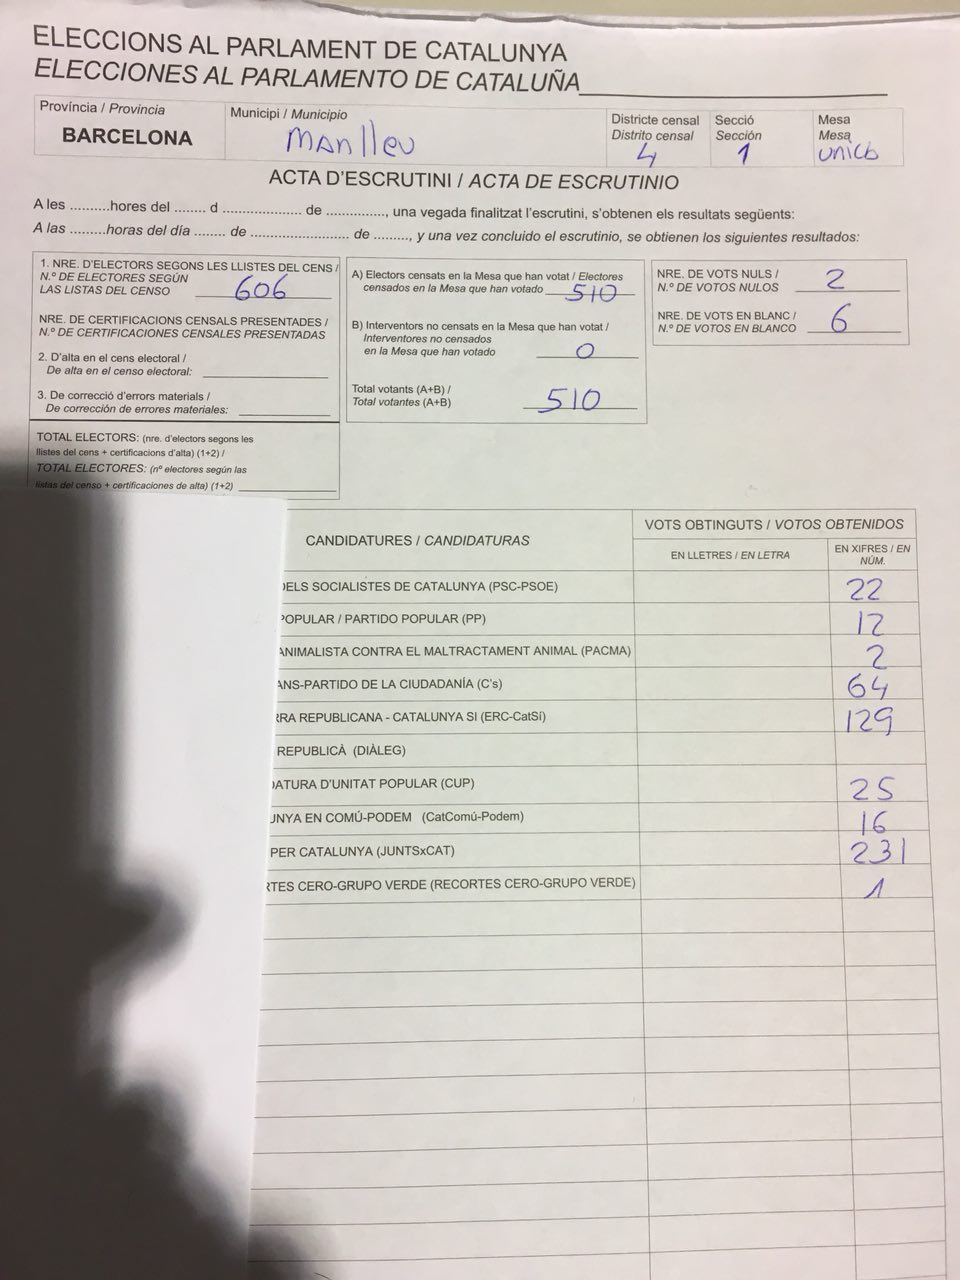 ELECCIONS AL PARLAMENT DE CATALUNYA
ELECCIONES AL PARLAMENTO DE CATALUÑA
Província / Provincia
BARCELONA
Municipi / Municipio
Manlleu
Districte censal
Distrito censal
4
Secció
Sección
1
Mesa
Mesa
unica
ACTA D'ESCRUTINI / ACTA DE ESCRUTINIO
A les .........hores del ........ d .................... de ..............., una vegada finalitzat l'escrutini, s'obtenen els resultats següents:
A las .........horas del día ........ de ......................... de .........., y una vez concluido el escrutinio, se obtienen los siguientes resultados:
1. NRE. D'ELECTORS SEGONS LES LLISTES DEL CENS /
N.º DE ELECTORES SEGÚN
LAS LISTAS DEL CENSO 606
NRE. DE CERTIFICACIONS CENSALS PRESENTADES /
N.º DE CERTIFICACIONES CENSALES PRESENTADAS
2. D'alta en el cens electoral /
De alta en el censo electoral:
3. De correcció d'errors materials /
De corrección de errores materiales:
TOTAL ELECTORS: (nre. d'electors segons les
llistes del cens + certificacions d'alta) (1+2) /
TOTAL ELECTORES: (nº electores según las
listas del censo + certificaciones de alta) (1+2)
A) Electors censats en la Mesa que han votat / Electores
censados en la Mesa que han votado 510
B) Interventors no censats en la Mesa que han votat /
Interventores no censados
en la Mesa que han votado 0
Total votants (A+B) /
Total votantes (A+B) 510
NRE. DE VOTS NULS /
N.º DE VOTOS NULOS 2
NRE. DE VOTS EN BLANC /
N.º DE VOTOS EN BLANCO 6
CANDIDATURES / CANDIDATURAS
VOTS OBTINGUTS / VOTOS OBTENIDOS
EN LLETRES / EN LETRA
EN XIFRES / EN
NÚM.
DELS SOCIALISTES DE CATALUNYA (PSC-PSOE) 22
POPULAR / PARTIDO POPULAR (PP) 12
ANIMALISTA CONTRA EL MALTRACTAMENT ANIMAL (PACMA) 2
ANS-PARTIDO DE LA CIUDADANÍA (C's) 64
RRA REPUBLICANA - CATALUNYA SI (ERC-CatSí) 129
REPUBLICÀ (DIÀLEG)
DATURA D'UNITAT POPULAR (CUP) 25
UNYA EN COMÚ-PODEM (CatComú-Podem) 16
PER CATALUNYA (JUNTSxCAT) 231
RTES CERO-GRUPO VERDE (RECORTES CERO-GRUPO VERDE) 1